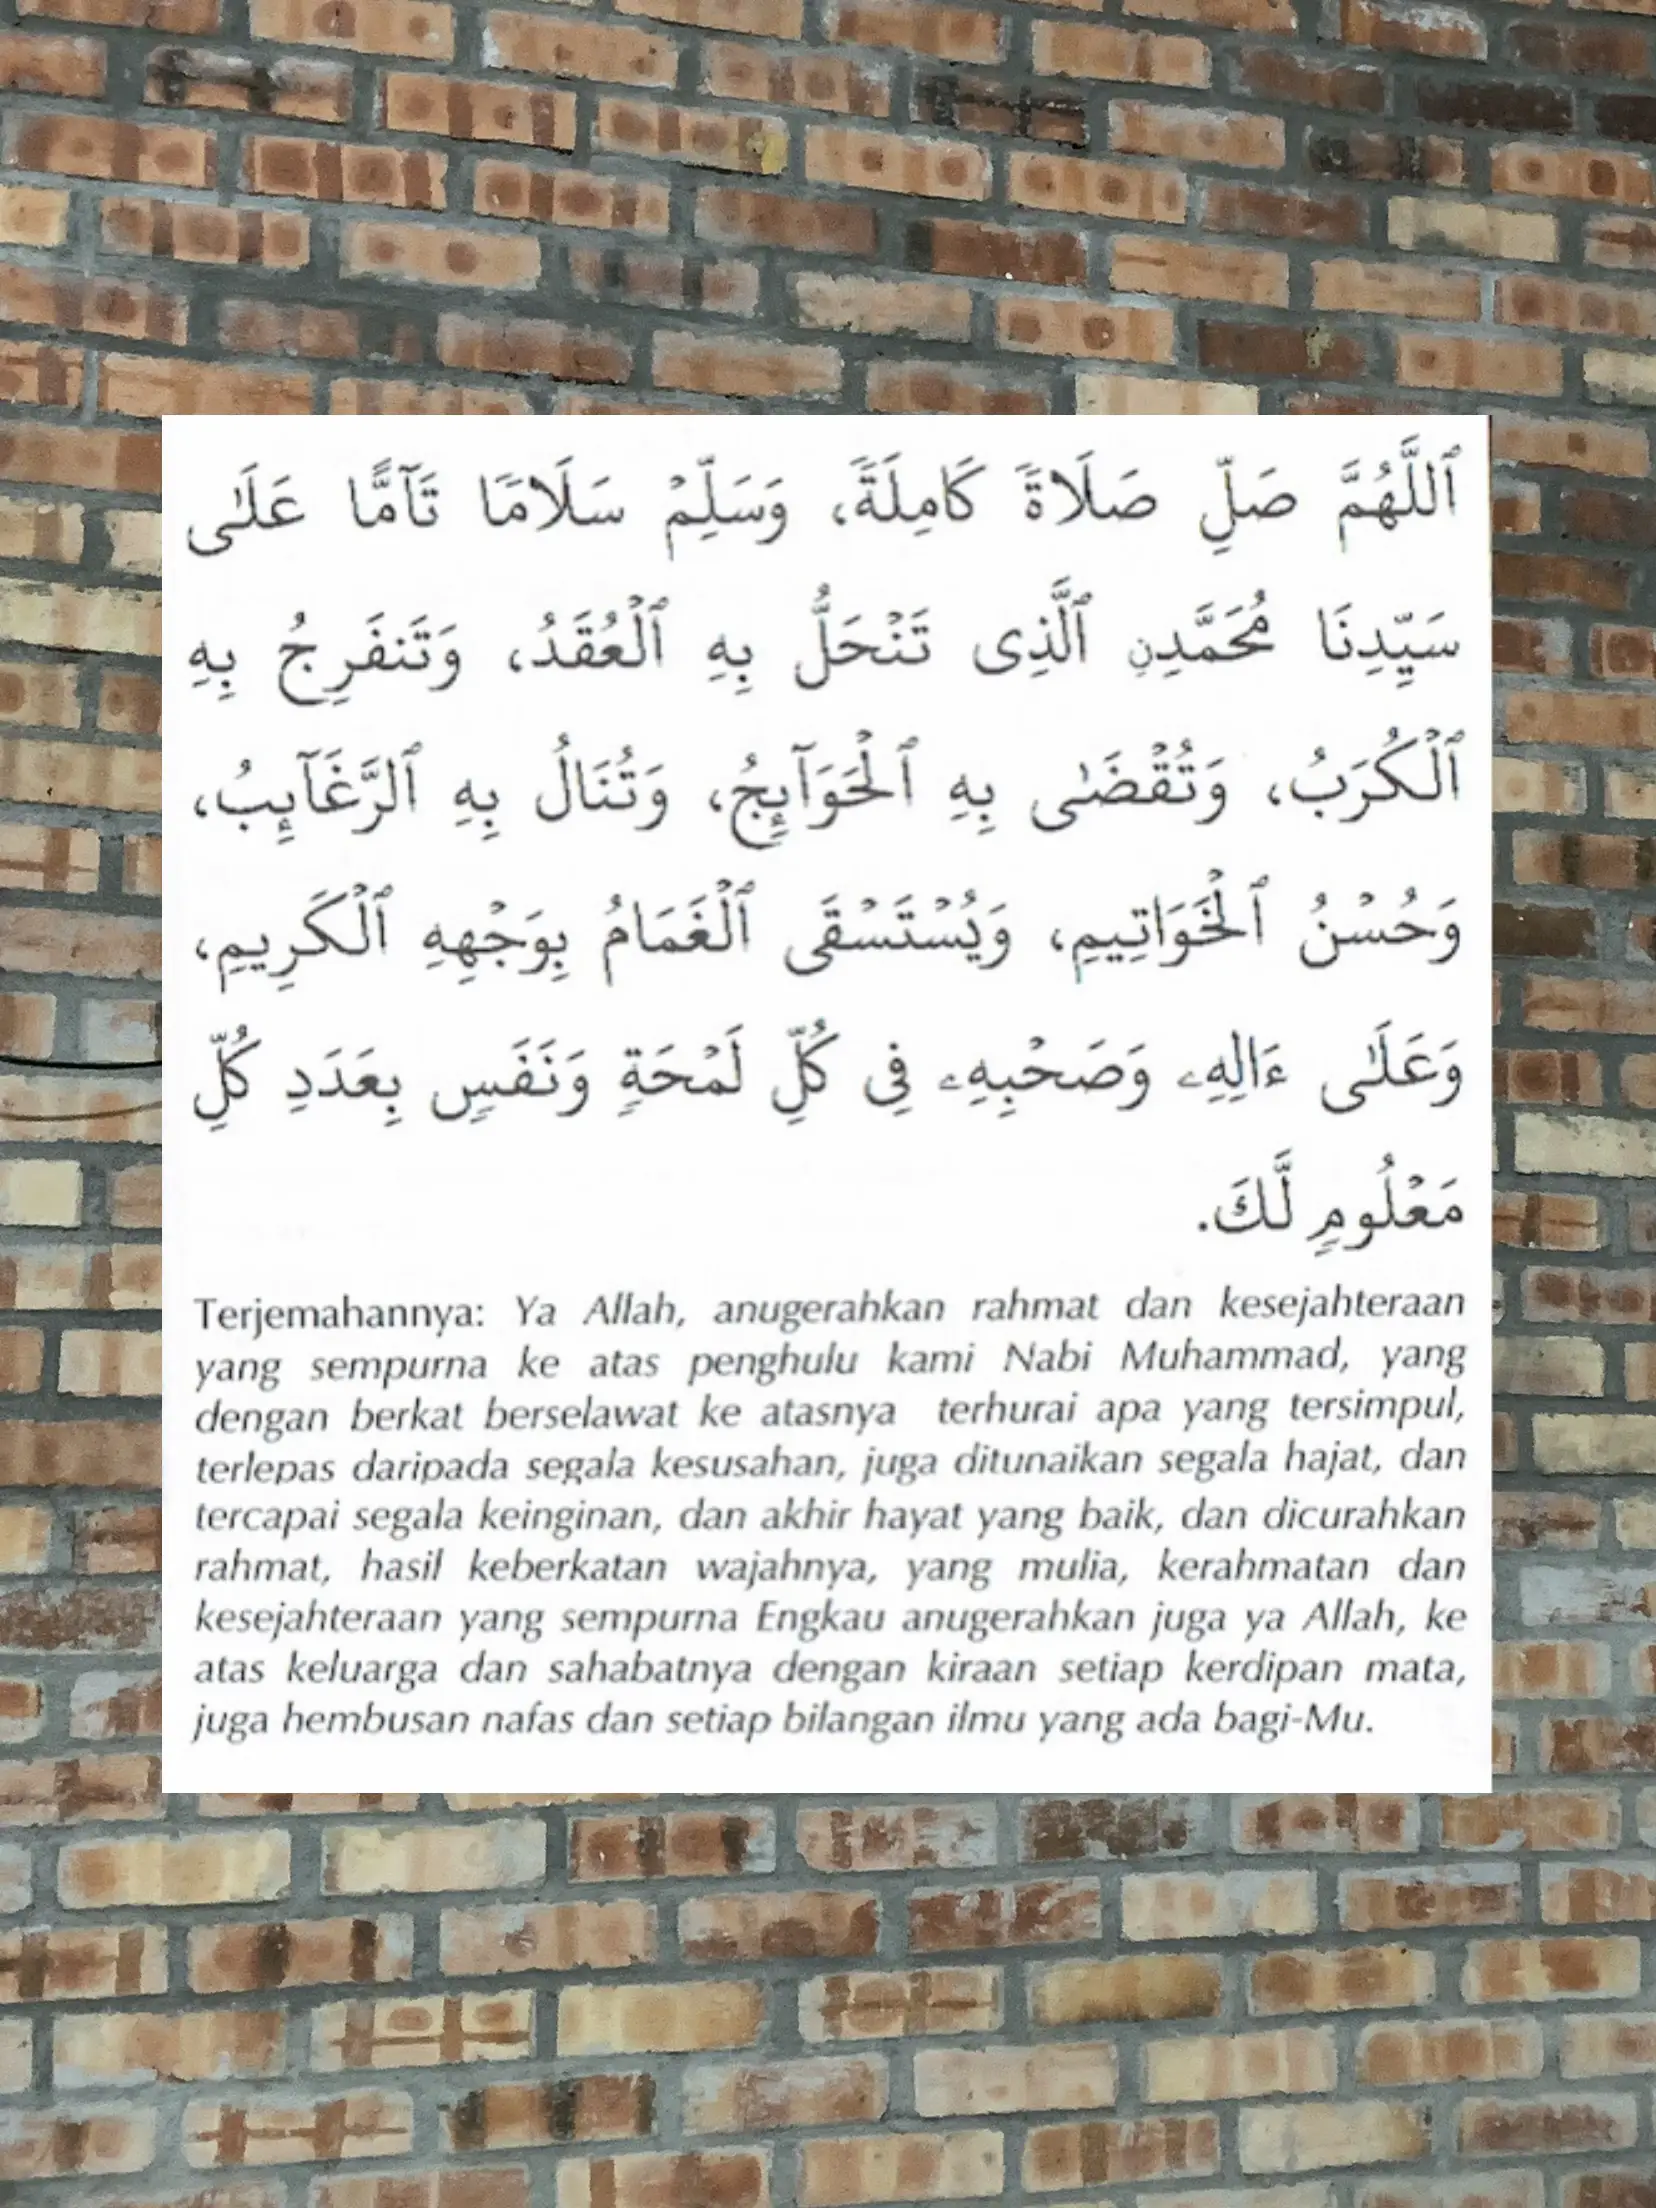 ٱللَّهُمَّ صَلِّ صَلَاةً كَامِلَةً، وَسَلِّمْ سَلَامًا تَآمًّا عَلَىٰ
سَيِّدِنَا مُحَمَّدِنِ ٱلَّذِى تَنْحَلُّ بِهِ ٱلْعُقَدُ، وَتَنفَرِجُ بِهِ
ٱلْكُرَبُ، وَتُقْضَىٰ بِهِ ٱلْحَوَآئِجُ، وَتُنَالُ بِهِ ٱلرَّغَآئِبُ،
وَحُسْنُ ٱلْخَوَاتِيمِ، وَيُسْتَسْقَى ٱلْغَمَامُ بِوَجْهِهِ ٱلْكَرِيمِ،
وَعَلَىٰ ءَالِهِۦ وَصَحْبِهِۦ فِى كُلِّ لَمْحَةٍ وَنَفَسٍ بِعَدَدِ كُلِّ
مَعْلُومٍ لَّكَ.
Terjemahannya: Ya Allah, anugerahkan rahmat dan kesejahteraan
yang sempurna ke atas penghulu kami Nabi Muhammad, yang
dengan berkat berselawat ke atasnya terhurai apa yang tersimpul,
terlepas daripada segala kesusahan, juga ditunaikan segala hajat, dan
tercapai segala keinginan, dan akhir hayat yang baik, dan dicurahkan
rahmat, hasil keberkatan wajahnya, yang mulia, kerahmatan dan
kesejahteraan yang sempurna Engkau anugerahkan juga ya Allah, ke
atas keluarga dan sahabatnya dengan kiraan setiap kerdipan mata,
juga hembusan nafas dan setiap bilangan ilmu yang ada bagi-Mu.